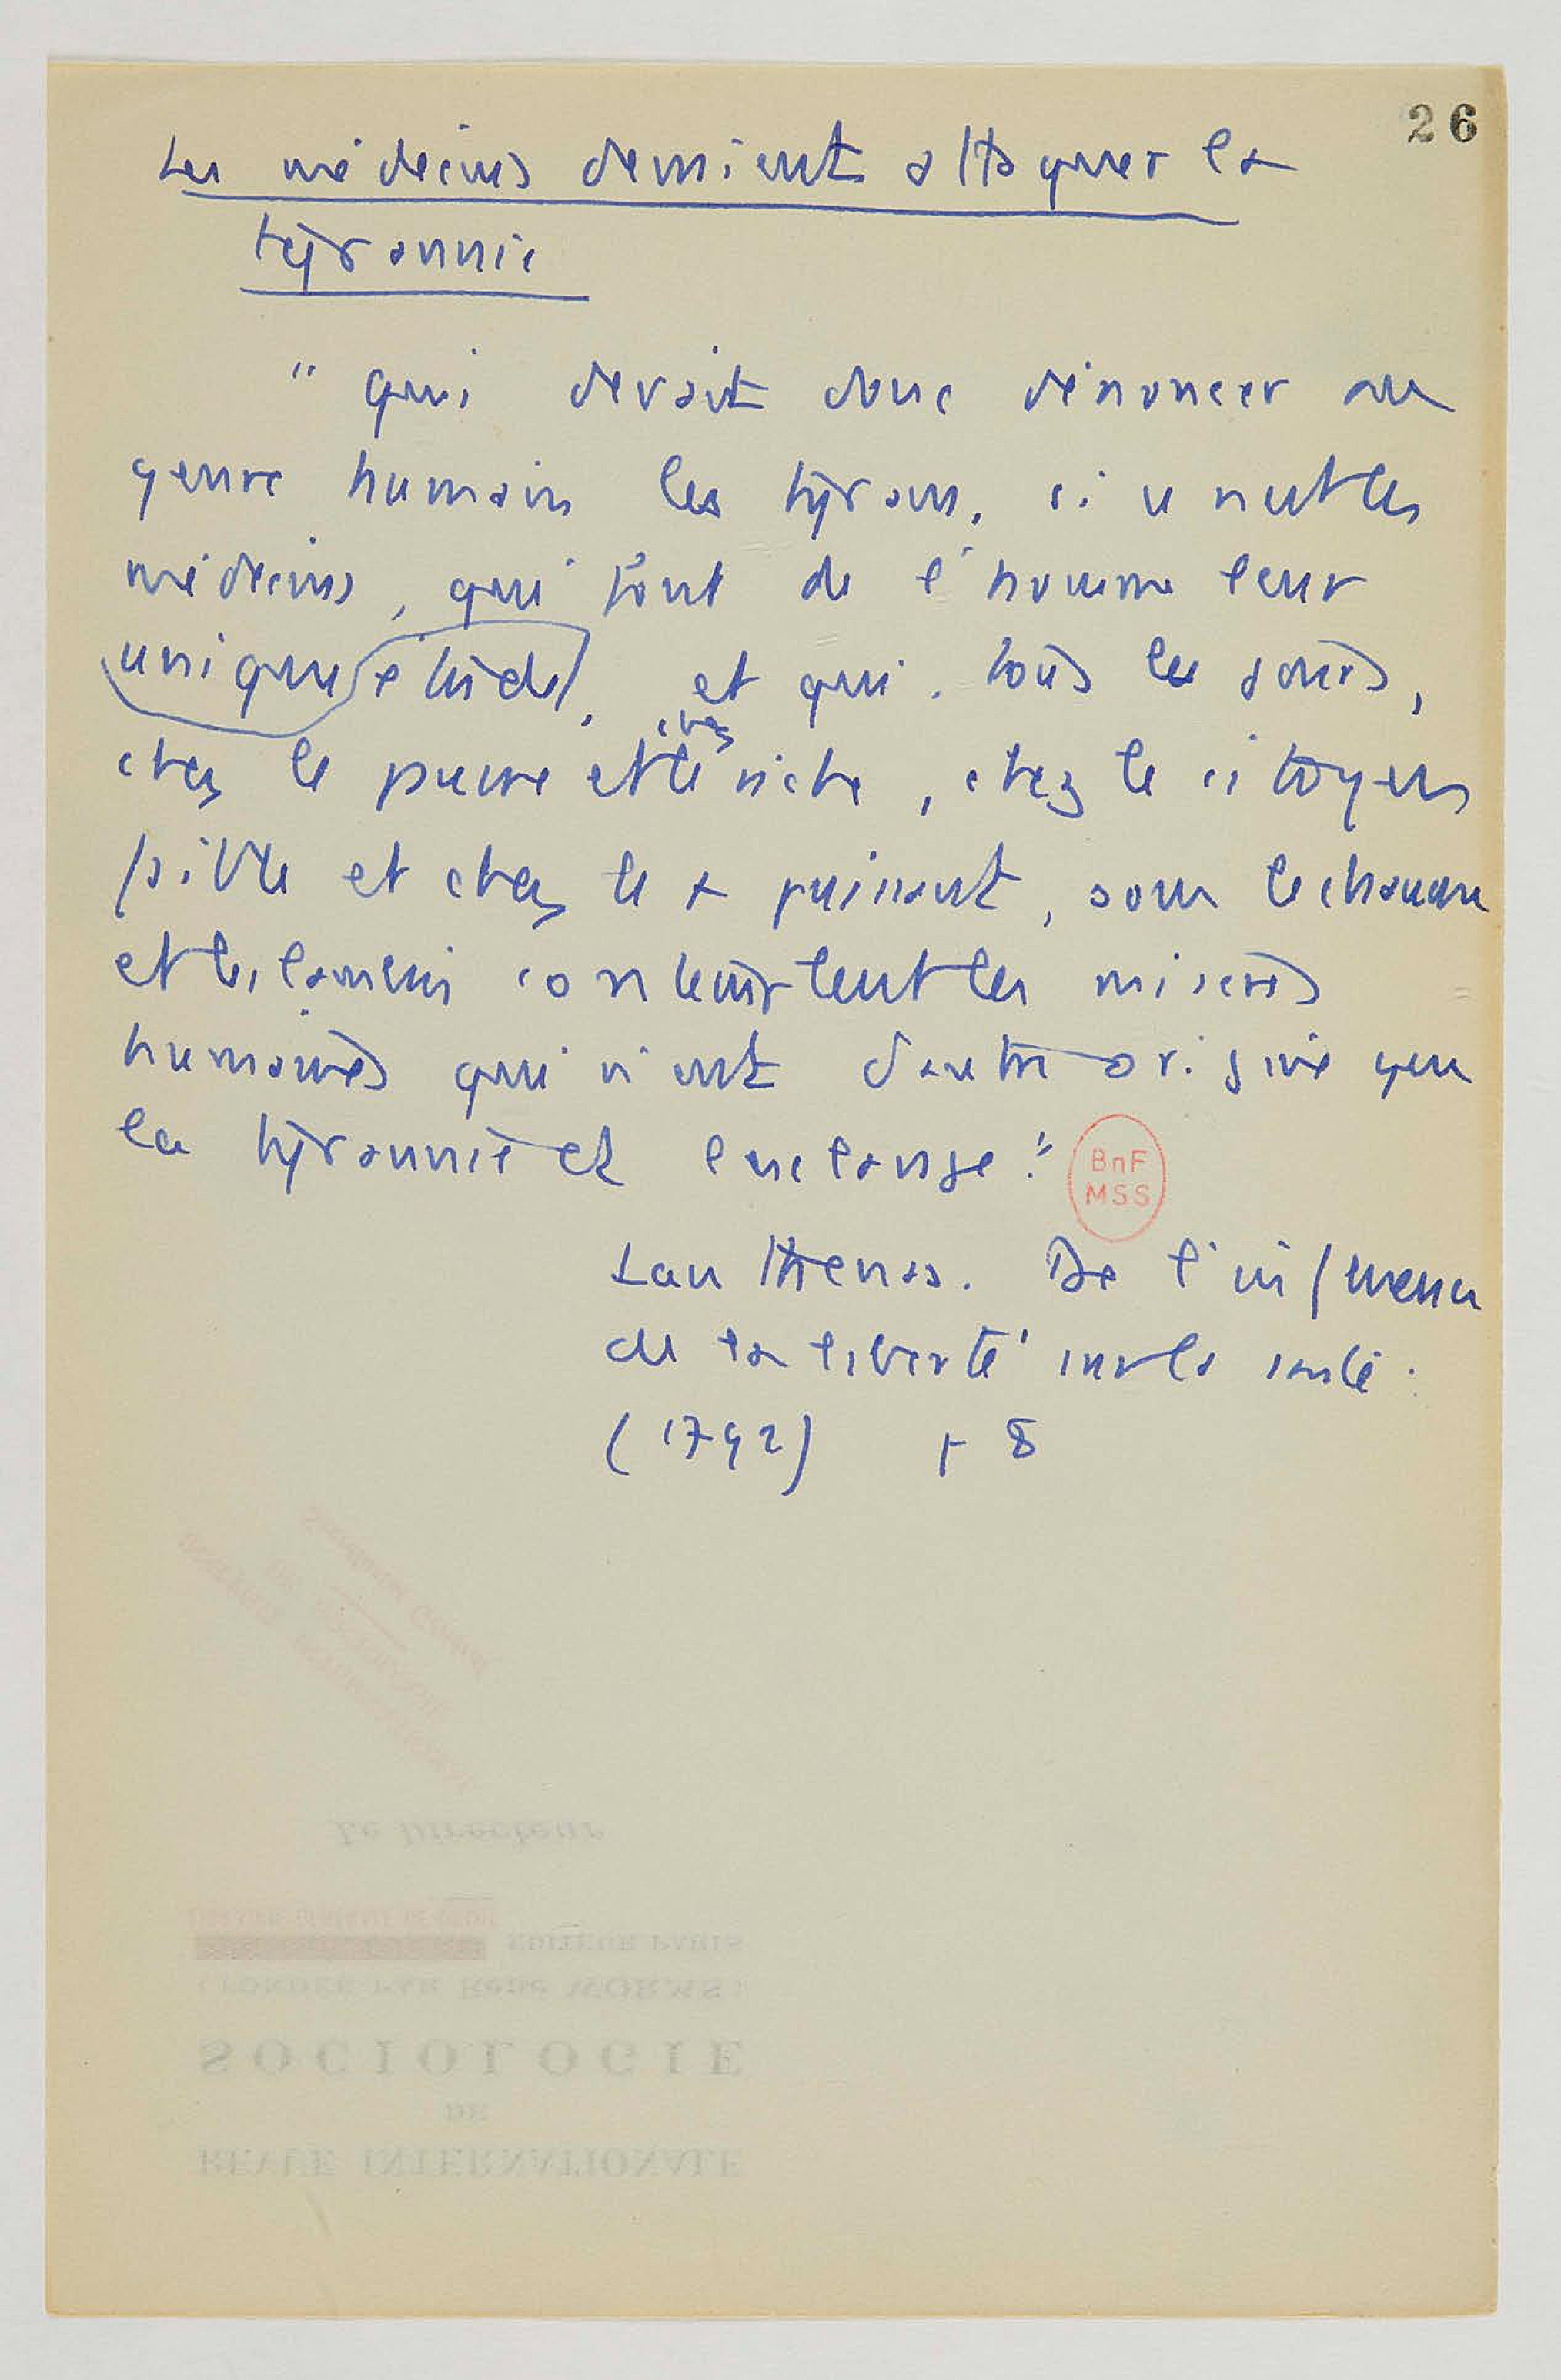 26
Les médecins devraient attaquer la
tyrannie
" qui devrait donc dénoncer au
genre humain les tyrans, si ce n'est les
médecins, qui font de l'homme leur
unique étude, et qui, tous les jours,
chez
chez le pauvre et le riche, chez le citoyen
faible et chez le + puissant, sous le chaume
et les lambris contemplent les misères
humaines qui n'ont d'autre origine que
la tyrannie et l'esclavage."
BnF
MSS
Lanthenas. De l'influence
de la liberté sur la santé.
(1792) p 8
Le Directeur
EDITEUR PARIS
(FONDÉE PAR René WORMS)
SOCIOLOGIE
DE
REVUE INTERNATIONALE